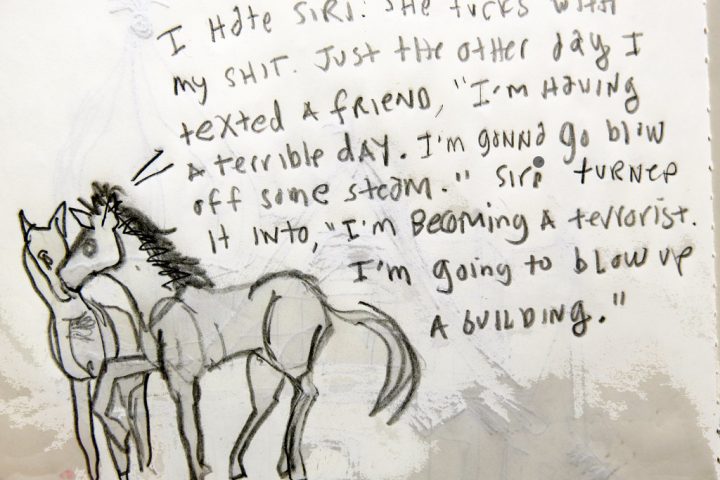 I HATE SIRI. SHE FUCKS WITH
my SHIT. JUST THE OTHER DAY I
texted A fRIEND, "I'm HAVING
A terrible DAY. I'm gonna go blow
off some steam." SIRI TURNED
IT INTO, "I'm BECOMING A terrorist.
I'm going to blow up
A BUILDING."